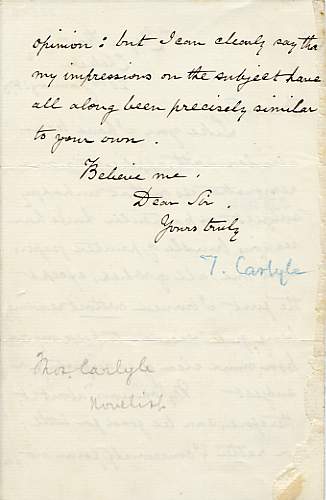 opinion: but I can clearly say tha
my impressions on the subject have
all along been precisely similar
to your own.
Believe me,
Dear Sir,
Yours truly
T. Carlyle
Thos. Carlyle
Novelist